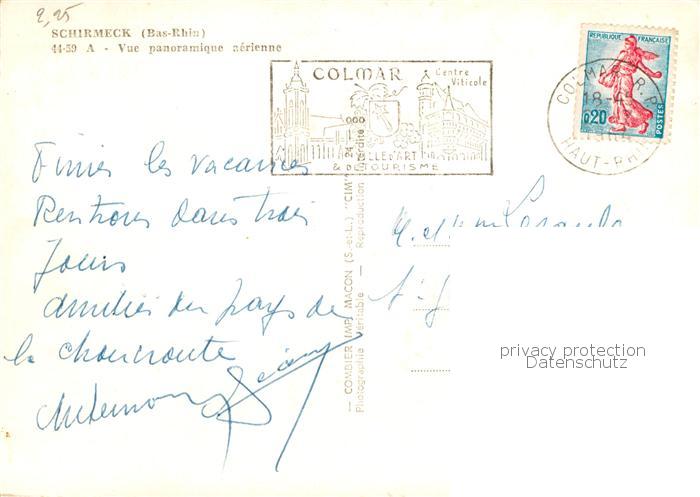 2,25
SCHIRMECK (Bas-Rhin)
44-59 A - Vue panoramique aérienne
COLMAR
Centre
Viticole
VILLE d'ART
& de TOURISME
REPUBLIQUE FRANÇAISE
0,20
POSTES
COLMAR R.P.
18-45
HAUT-RHIN
Finies les vacances
Rentrons dans trois
jours
amitiés du pays de
la choucroute
M. et Mme
— COMBIER IMP. MACON (S.-et-L.) "CIM"
Photographie véritable — Reproduction interdite
privacy protection
Datenschutz